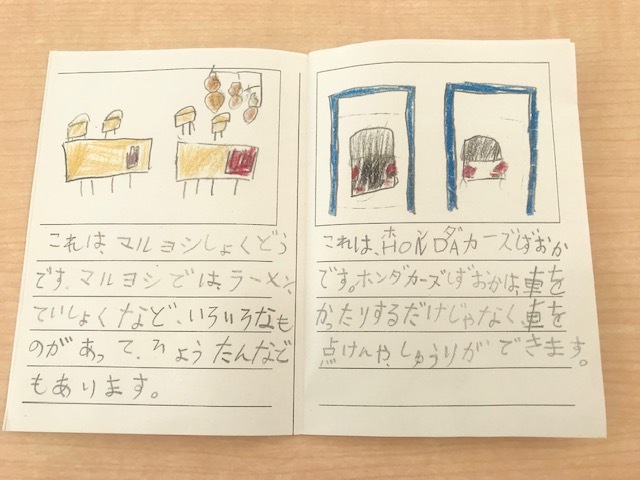 これは、マルヨシしょくどう
です。マルヨシでは、ラーメン、
ていしょくなど、いろいろなも
のがあって、ひょうたんなど
もあります。
これは、ホンダ
HONDAカーズしずおか
です。ホンダカーズしずおかは、車を
かったりするだけじゃなく、車を
点けんや、しゅうりができます。